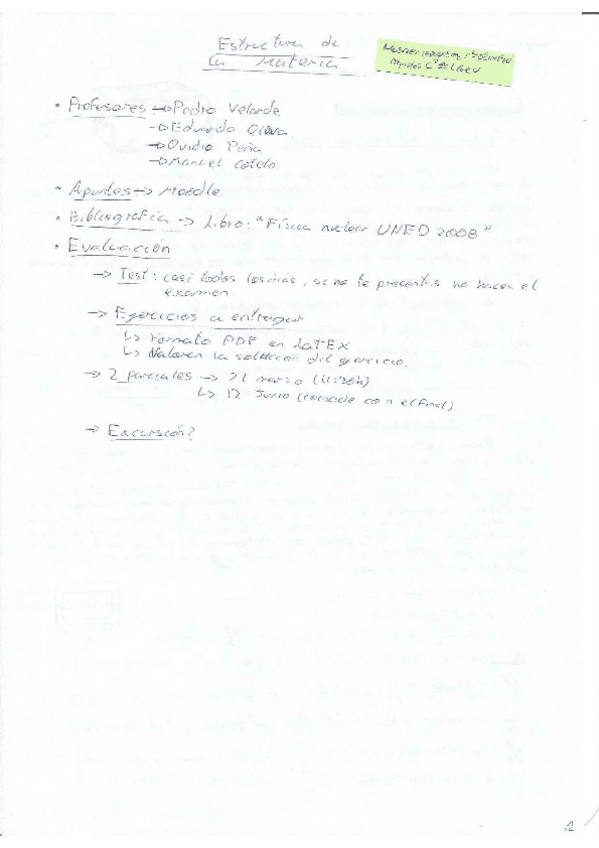 Estructura de
la Materia
• Profesores → Pedro Velarde
→ Eduardo Oliva
→ Ovidio Peña
→ Manuel Cotelo
• Apuntes → Moodle
• Bibliografía → Libro: "Física nuclear UNED 2008"
• Evaluación
→ Test: casi todos los días, si no te presentas no haces el
examen
→ Ejercicios a entregar
↳ Formato PDF en LaTEX
↳ Valoran la solución del ejercicio.
→ 2 parciales → 21 marzo
↳ 12 Junio (coincide con el final)
→ Excursión?
2